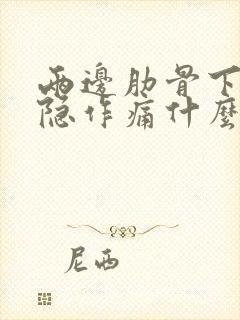 兩邊肋骨下
隐作痛什麼
尼西